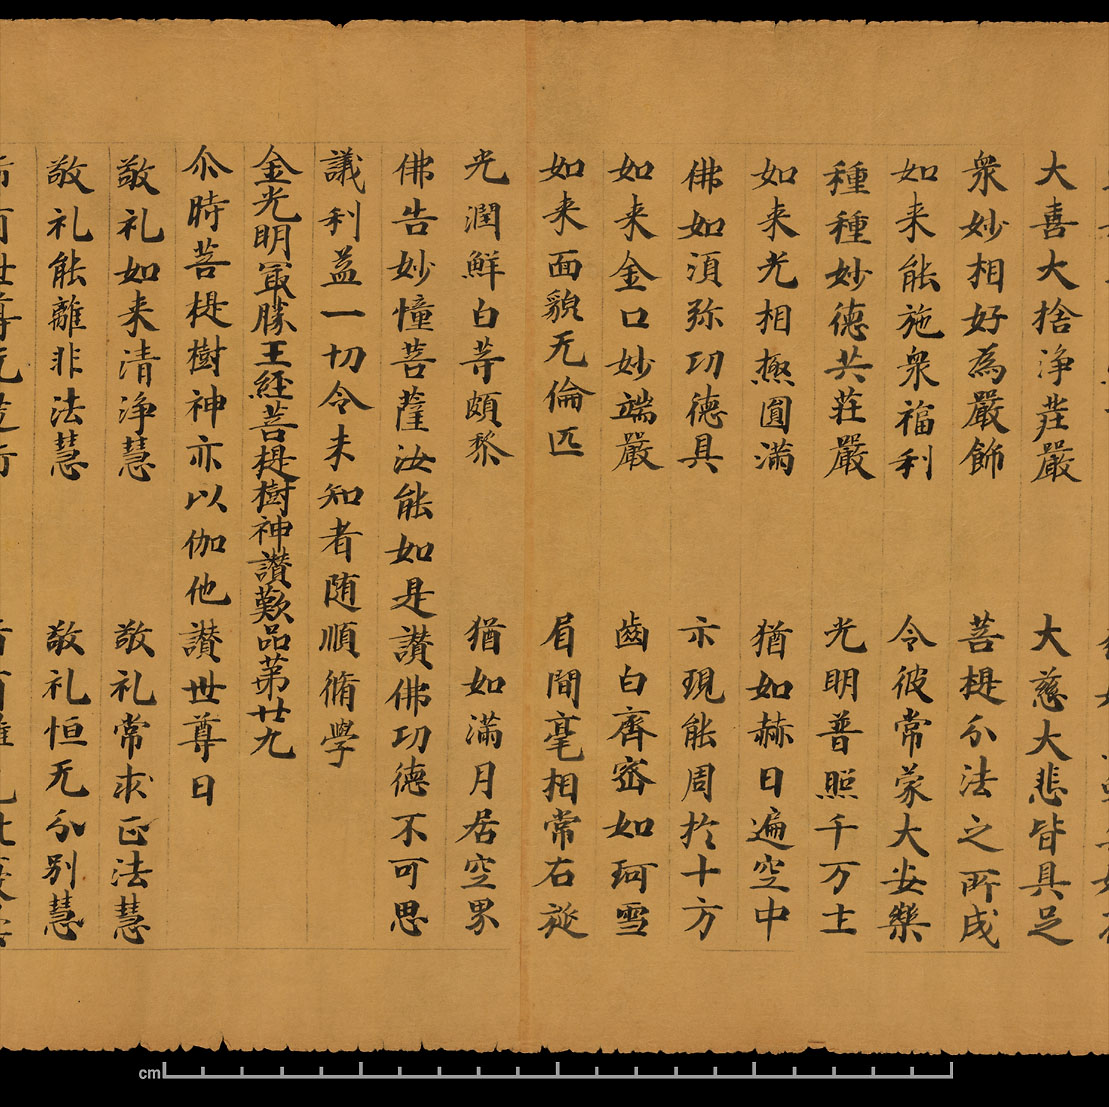 大喜大捨淨莊嚴 大慈大悲皆具足
衆妙相好為嚴飾 菩提分法之所成
如来能施衆福利 令彼常蒙大安樂
種種妙德共莊嚴 光明普照千万土
如来光相極圓滿 猶如赫日遍空中
佛如須弥功德具 示現能周於十方
如来金口妙端嚴 齒白齊密如珂雪
如来面貌无倫匹 眉間毫相常右旋
光潤鮮白等頗梨 猶如滿月居空界
佛告妙幢菩薩汝能如是讃佛功德不可思
議利益一切令未知者随順脩學
金光明冣勝王經菩提樹神讃歎品第廿九
尒時菩提樹神亦以伽他讃世尊曰
敬礼如来清淨慧 敬礼常求正法慧
敬礼能離非法慧 敬礼恒无分別慧